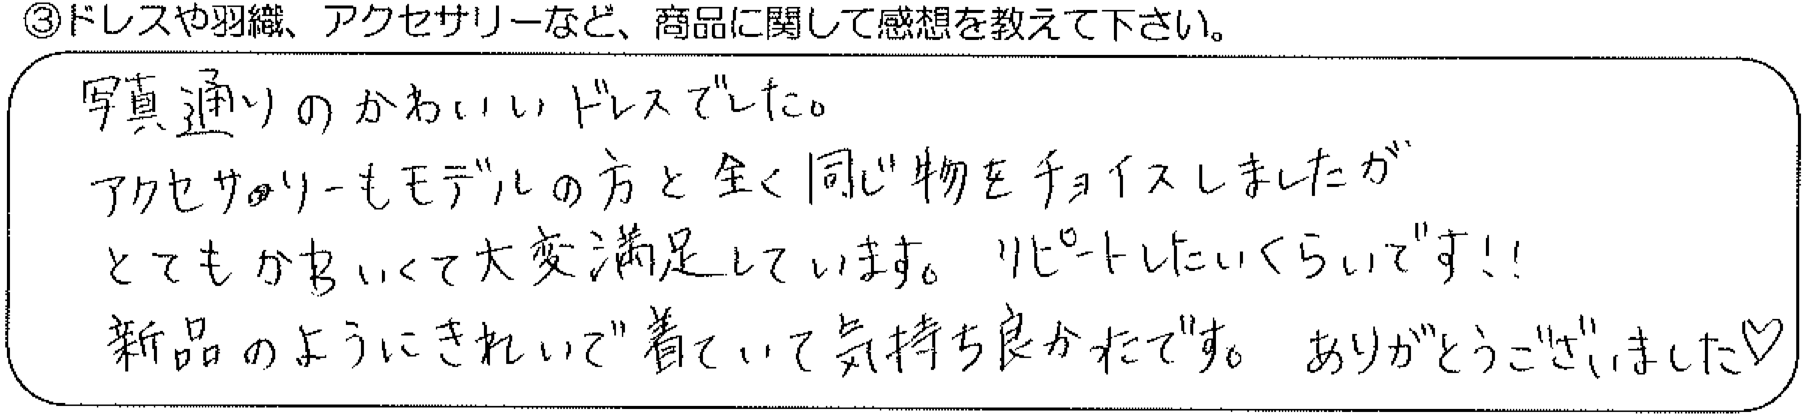 ③ドレスや羽織、アクセサリーなど、商品に関して感想を教えて下さい。
写真通りのかわいいドレスでした。
アクセサリーもモデルの方と全く同じ物をチョイスしましたが
とてもかわいくて大変満足しています。 リピートしたいくらいです!!
新品のようにきれいで着ていて気持ち良かったです。 ありがとうございました♡